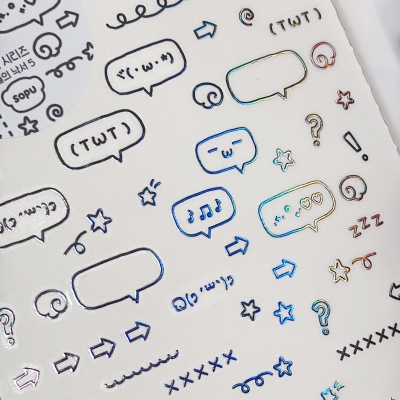 (TωT)
시리즈
낙서 5
sopu
(･ω･*)
(TωT)
?
!
zzz
?
?
xxxxx
xxxxx